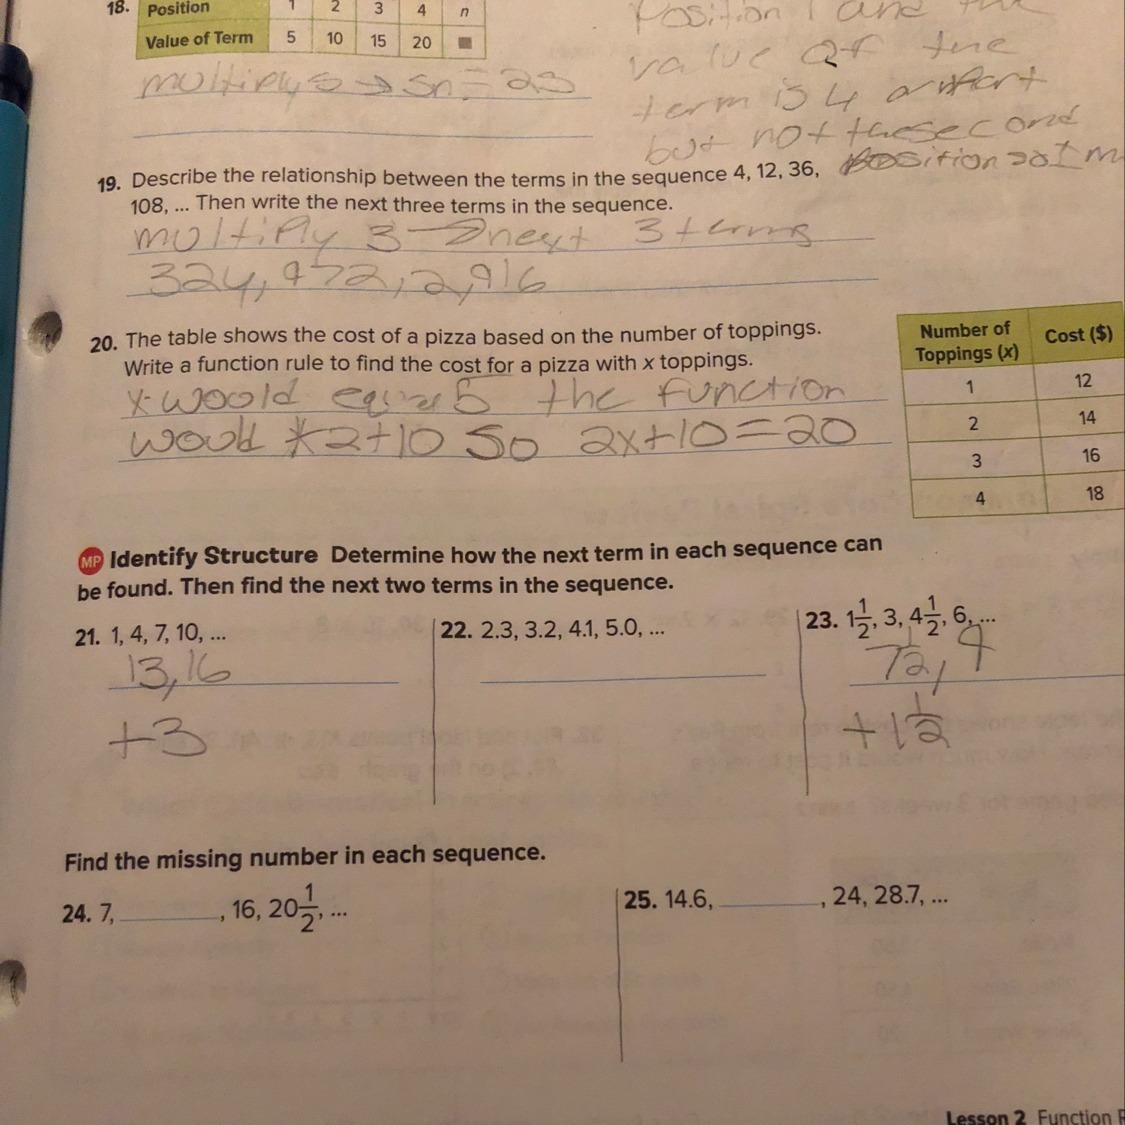 18. Position 1 2 3 4 n
Value of Term 5 10 15 20
multiply 5 → 5n = 25
Position 1 and the
value of the
term is 4 apart
but not the second
position
19. Describe the relationship between the terms in the sequence 4, 12, 36,
108, ... Then write the next three terms in the sequence.
multiply 3 → next 3 terms
324, 972, 2,916
20. The table shows the cost of a pizza based on the number of toppings.
Write a function rule to find the cost for a pizza with x toppings.
x would equal 5 the function
would x2+10 so 2x+10=20
Number of Toppings (x) Cost ($)
1 12
2 14
3 16
4 18
MP Identify Structure Determine how the next term in each sequence can
be found. Then find the next two terms in the sequence.
21. 1, 4, 7, 10, ...
13, 16
+3
22. 2.3, 3.2, 4.1, 5.0, ...
23. 1 1/2, 3, 4 1/2, 6, ...
7 1/2, 9
+1 1/2
Find the missing number in each sequence.
24. 7, ________, 16, 20 1/2, ...
25. 14.6, ________, 24, 28.7, ...
Lesson 2 Function